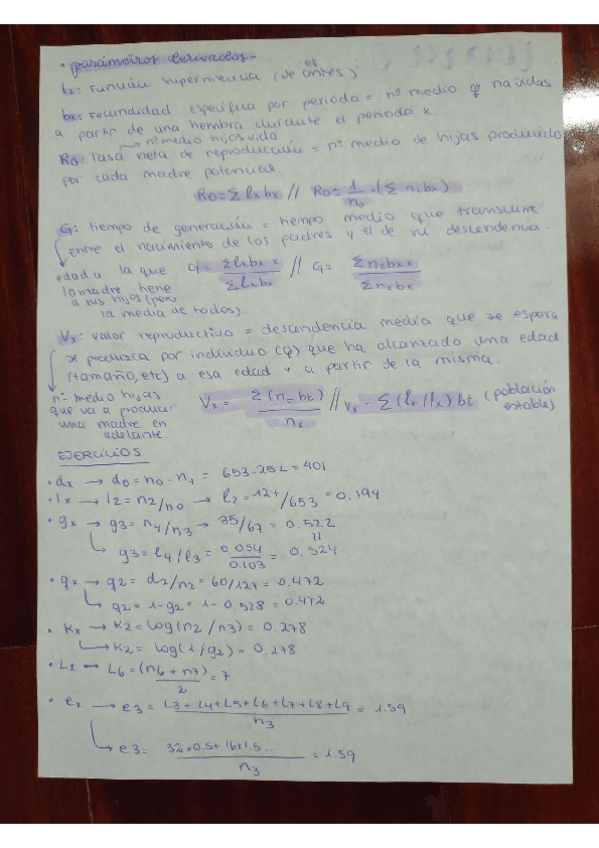 • parámetros derivados -
lx: Función supervivencia (de antes) el
bx: Fecundidad específica por periodo = nº medio ♀ nacidas
a partir de una hembra durante el periodo x.
nº medio hijos vida
R0: Tasa neta de reproducción = nº medio de hijas producido
por cada madre potencial.
R0 = Σ lx bx // R0 = 1/n0 · (Σ nx bx)
G: tiempo de generación = tiempo medio que transcurre
entre el nacimiento de los padres y el de su descendencia.
edad a la que G = Σ lx bx x / Σ lx bx // G = Σ nx bx x / Σ nx bx
la madre tiene
a sus hijos (pero
la media de todos)
Vx: valor reproductivo = descendencia media que se espera
x produzca por individuo (♀) que ha alcanzado una edad
(tamaño, etc) a esa edad y a partir de la misma.
nº medio hijas
que va a producir
una madre en
adelante.
Vx = Σ (nt bt) / nx // Vx = Σ (lt / lx) bt (población estable)
EJERCICIOS
• dx → d0 = n0 - n1 = 653-252 = 401
• lx → l2 = n2/n0 → l2 = 127/653 = 0.194
• gx → g3 = n4/n3 → 35/67 = 0.522
g3 = l4/l3 = 0.054/0.103 = 0.524
• qx → q2 = d2/n2 = 60/127 = 0.472
q2 = 1-g2 = 1-0.528 = 0.472
• Kx → K2 = log(n2/n3) = 0.278
K2 = log(1/g2) = 0.278
• Lx → L6 = (n6 + n7)/2 = 7
• ex → e3 = L3+L4+L5+L6+L7+L8+L9 / n3 = 1.59
e3 = 32x0.5+16x1.5... / n3 = 1.59